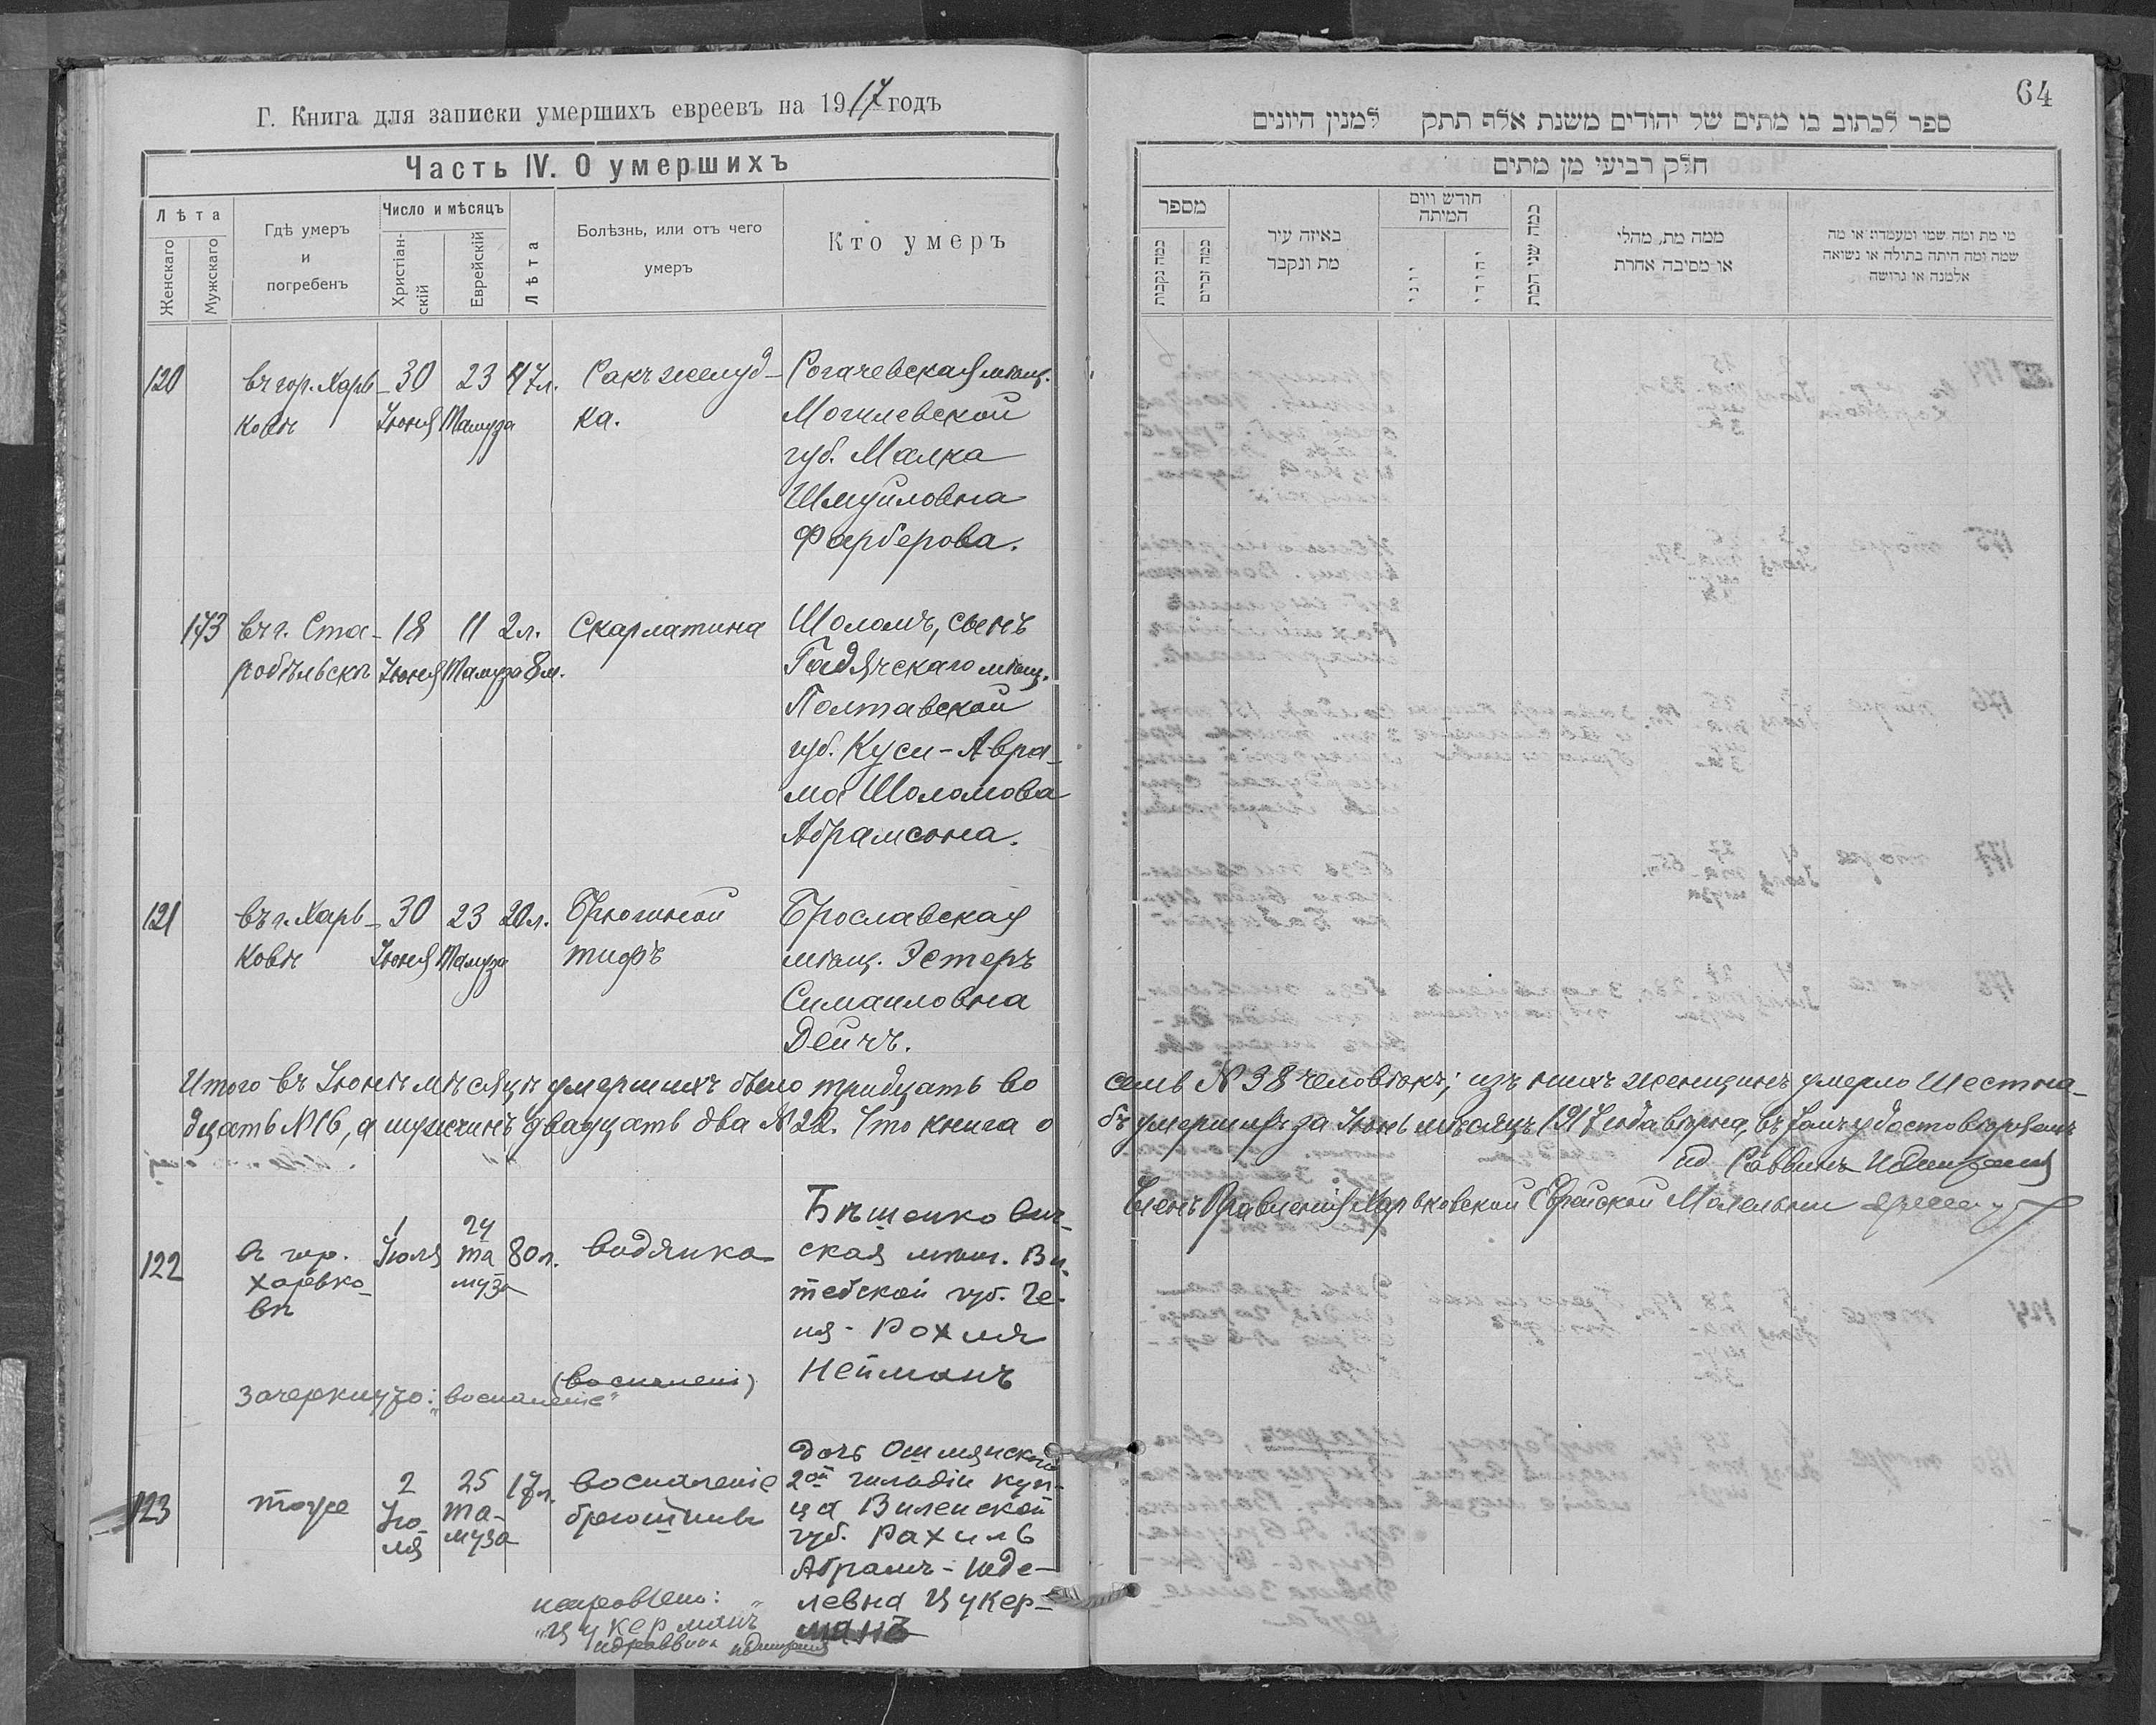 Г. Книга для записки умершихъ евреевъ на 1917 годъ
Часть IV. О умершихъ
Лѣта
Женскаго
Мужскаго
Гдѣ умеръ
и
погребенъ
Число и мѣсяцъ
Христіан-
скій
Еврейскій
Лѣта
Болѣзнь, или отъ чего
умеръ
Кто умеръ
120
въ гор. Харь-
ковѣ
30
Іюня
23
Тамуза
47 л.
Ракъ желуд-
ка.
Рогачевская мѣщ.
Могилевской
губ. Малка
Шмуйловна
Фарберова.
173
въ г. Ста-
робѣльскѣ
18
Іюня
11
Тамуза
2 л.
8 м.
Скарлатина
Шоломъ, сынъ
Гадячскаго мѣщ.
Полтавской
губ. Куси-Авра-
ма Шоломова
Абрамсона.
121
въ г. Харь-
ковѣ
30
Іюня
23
Тамуза
20 л.
Брюшной
тифъ
Брославская
мѣщ. Эстеръ
Симаиловна
Дейчъ.
Итого въ Іюнѣ мѣсяцѣ умершихъ было тридцать во
семь № 38 человѣкъ; изъ нихъ женщинъ умерло шестна-
дцать № 16, а мужчинъ двадцать два № 22. Что книга о
бъ умершихъ за Іюнь мѣсяцъ 1917 года вѣрна, въ томъ удостовѣряемъ
ид Раввинъ
Членъ Правленія Харьковской Еврейской Молельни
122
въ гор.
Харько-
вѣ
1
Іюля
24
Та
муза
80 л.
водянка
Бѣшенкович-
ская мѣщ. Ви-
тебской губ. Ге-
ня-Рохля
Нейманъ
(воспаленіе)
зачеркнуто: „воспаленіе“
123
тоже
2
Ію-
ля
25
Та-
муза
17 л.
воспаленіе
брюшины
дочь Ошмянскаго
2ой гильдіи куп-
ца Виленской
губ. Рахиль
Абрамъ-Юде-
левна Цукер-
манъ
исправлено:
„Цукерманъ“
ид раввина
64
ספר לכתוב בו מתים של יהודים משנת אלף תתק למנין היונים
חלק רביעי מן מתים
מספר
כמה נקבות
כמה זכרים
באיזה עיר
מת ונקבר
חודש ויום
המיתה
יוני
יהודי
כמה שני המת
ממה מת, מחלי
או מסיבה אחרת
מי מת ומה שמו ומעמדו: או מה
שמה ומה היתה בתולה או נשואה
אלמנה או גרושה